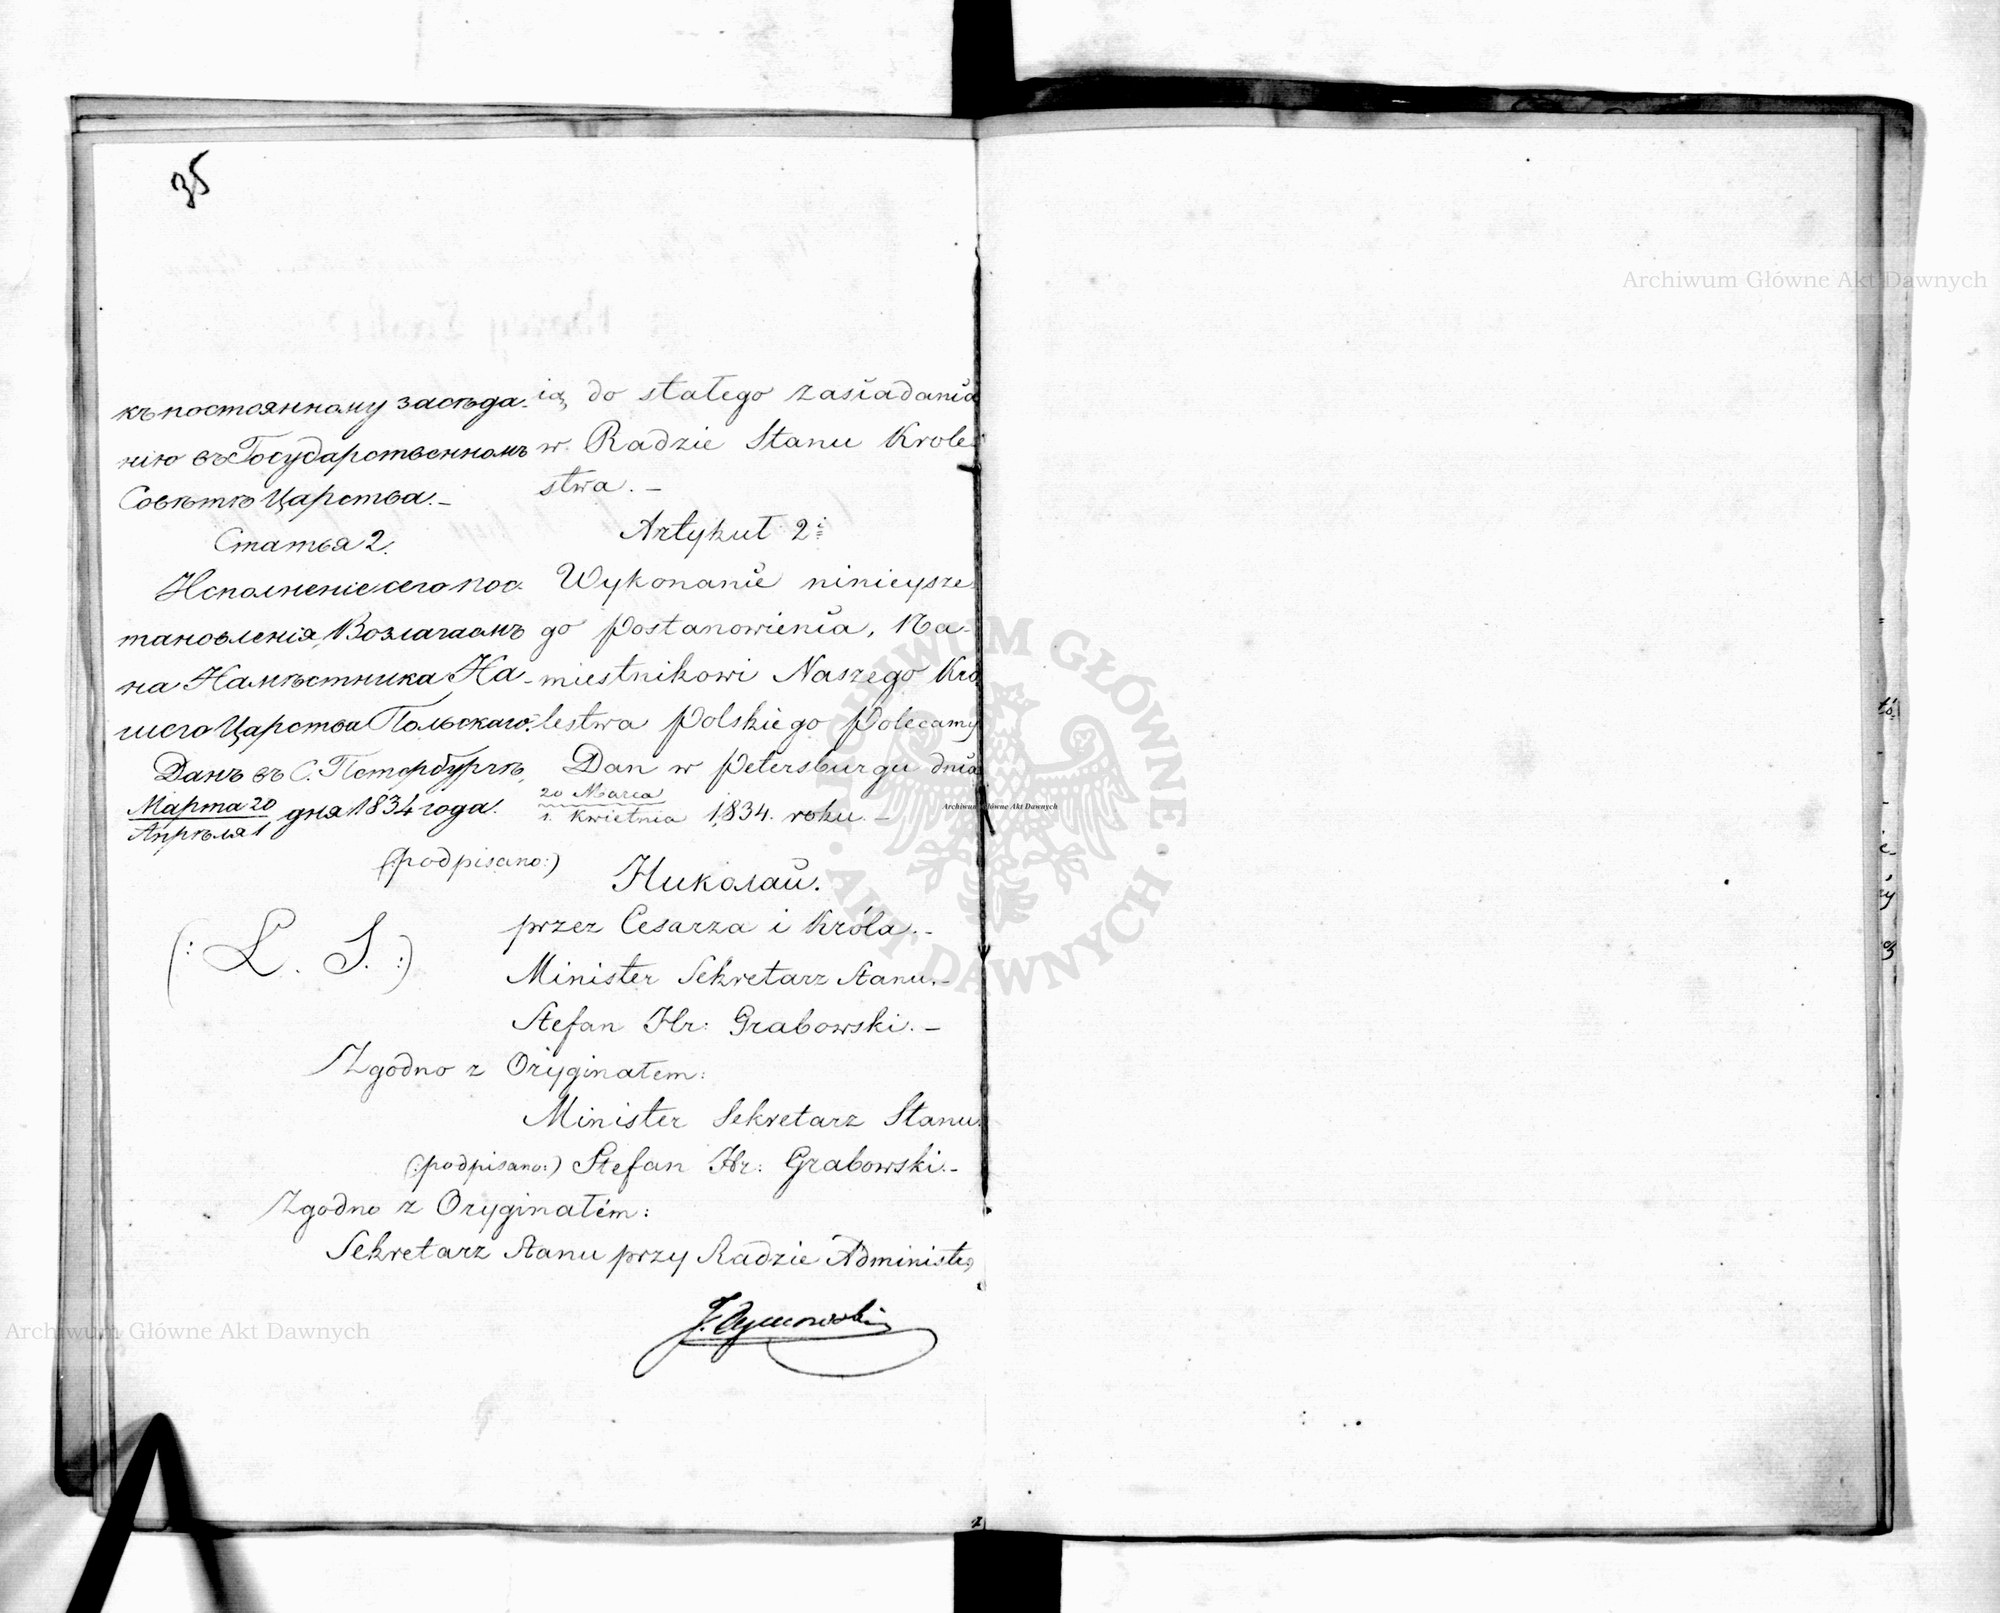 35
къ постоянному засѣда-
нію въ Государственномъ
Совѣтѣ Царства.-
Статья 2.
Исполненіе сего пос-
тановленія, Возлагаемъ
на Намѣстника На-
шего Царства Польскаго.
Данъ въ С. Петербургѣ,
Марта 20
Апрѣля 1 дня 1834 года.
ią, do stałego zasiadania
w Radzie Stanu Krole-
stwa. -
Artykuł 2i
Wykonanie ninieysze-
go postanowienia, Na-
miestnikowi Naszego Kró-
lestwa Polskiego Polecamy
Dan w Petersburgu dnia
20 Marca
1. Kwietnia 1834. roku. -
(:podpisano:)
Николай.
(: L. S. :)
przez Cesarza i Króla. -
Minister Sekretarz Stanu. -
Stefan Hr: Grabowski. -
Zgodno z Oryginałem:
Minister Sekretarz Stanu.
(:podpisano:) Stefan Hr: Grabowski. -
Zgodno z Oryginałem:
Sekretarz Stanu przy Radzie Administr:
J. Tymowski
Archiwum Główne Akt Dawnych
Archiwum Główne Akt Dawnych
Archiwum Główne Akt Dawnych
ARCHIWUM GŁÓWNE AKT DAWNYCH